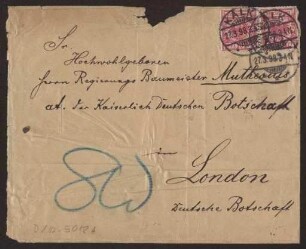 KALK
KALK
27.3.98.3-4N.
Sr.
Hochwohlgeboren
Herrn Regierungs Baumeister Muthesius
at. der Kaiserlich Deutschen Botschaft
in
London
Deutsche Botschaft
SW